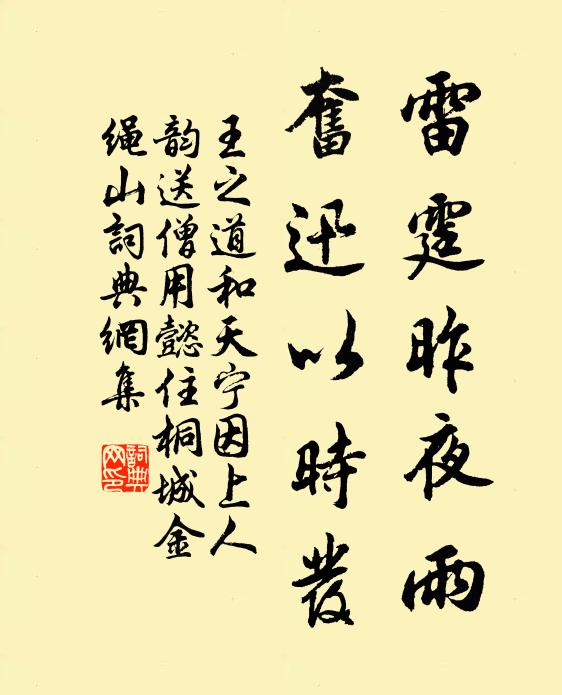 雷霆昨夜雨
奮迅以時發
王之道和天宁因上人
韵送僧用懿住桐城金
绳山詞典網集
詞典
网印